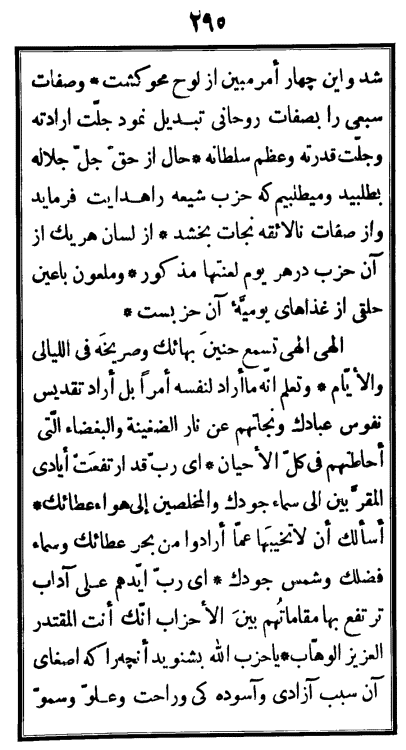 ٢٩٥
شد و این چهار أمر مبین از لوح محو کشت * وصفات
سبعی را بصفات روحانی تبدیل نمود جلّت ارادته
وجلّت قدرته وعظم سلطانه * حال از حقّ جلّ جلاله
بطلبید و میطلبیم که حزب شیعه را هدایت فرماید
واز صفات نالائقه نجات بخشد * از لسان هریك از
آن حزب در هر یوم لعنتها مذکور * وملعون باعین
حلقی از غذاهای یومیّهٔ آن حزبست *
الهی الهی تسمع حنینَ بهائك وصریخَه فی اللیالی
والأیّام * وتعلم انّه ماأراد لنفسه أمراً بل أراد تقدیس
نفوس عبادك ونجاتهم عن نار الضغینة والبغضاء الّتی
أحاطتهم فی کلّ الأحیان * ای ربّ قد ارتفعَتْ أیادی
المقرّبین الی سماء جودك والمخلصین إلی هواء عطائك *
أسألك أن لاتخیبَها عمّا أرادوا من بحر عطائك وسماء
فضلك وشمس جودك * ای ربّ ایّدهم علی آداب
ترتفع بها مقاماتُهم بینَ الأحزاب انّك أنت المقتدر
العزیز الوهّاب * یاحزب الله بشنوید أنچه را که اصغای
آن سبب آزادی وآسوده کی وراحت وعلوّ وسموّ